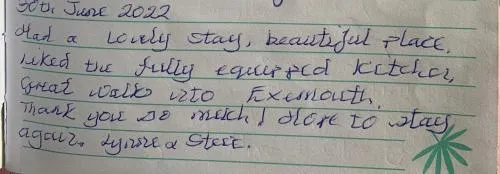 30th June 2022
Had a lovely stay, beautiful place.
Liked the fully equipped kitchen,
Great walk into Exmouth.
Thank you so much, Hope to stay
again. Lynne & Steve.